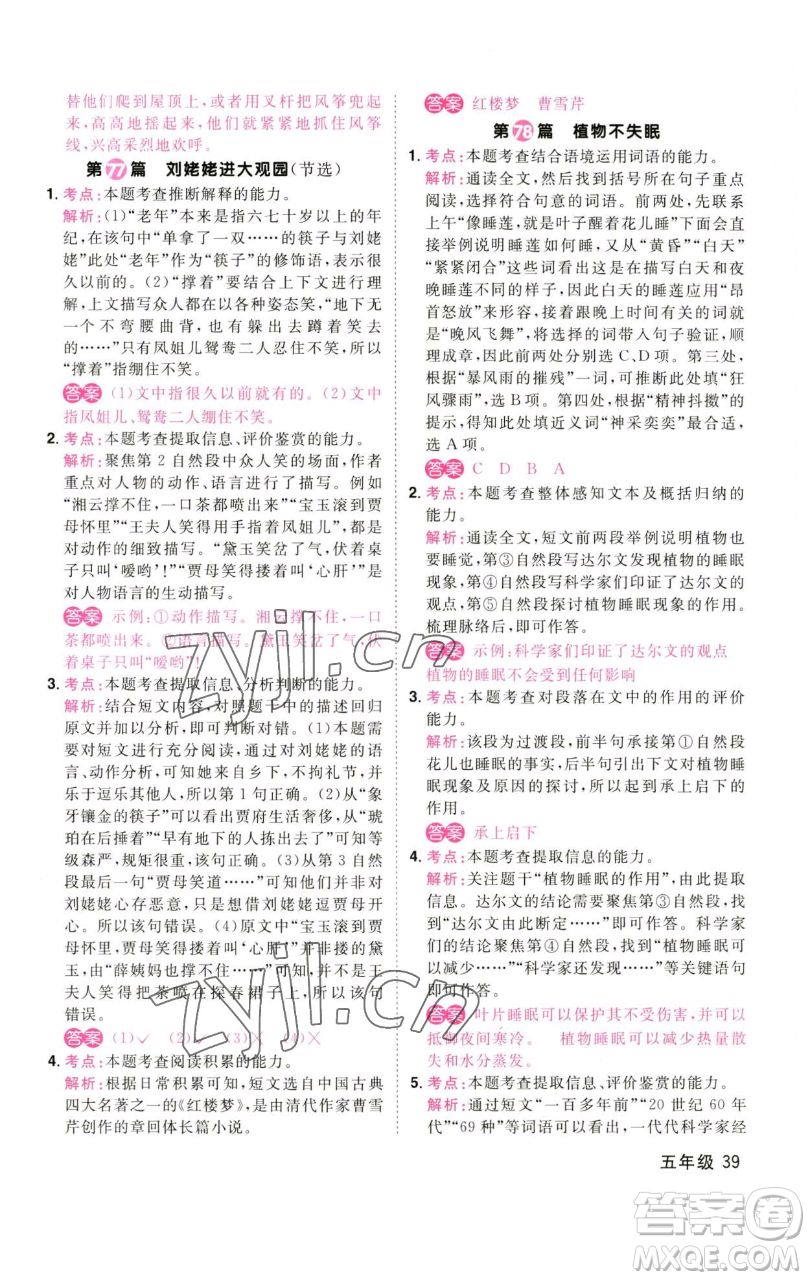 替他们爬到屋顶上，或者用叉杆把风筝兜起
来，高高地摇起来，他们会紧紧地扯住风筝
线，兴高采烈地欢呼。
第77篇 刘姥姥进大观园(节选)
1. 考点：本题考查推断解释的能力。
解析：(1)“老年”本来是指六七十岁以上的年
纪，在该句中“单拿了一双……的筷子与刘姥
姥”此处“老年”作“筷子”的修饰语，表示很
久以前的。(2)“撑着”要结合上下文进行理
解，上文描写众人都有各种姿态笑，“地下无
一个不弯腰曲背，也有躲出去蹲着笑去
的……”只有凤姐儿鸳鸯二人忍住不笑，所以
“撑着”指绷住不笑。
答案 (1)文中指很久以前就有的。(2)文中
指凤姐儿、鸳鸯二人绷住不笑。
2. 考点：本题考查提取信息、评价鉴赏的能力。
解析：聚焦第2自然段中众人笑的场面，作者
重点对人物的动作、语言进行了细致的描写。
如：“湘云撑不住，一口茶都喷出来”“宝玉滚到贾
母怀里”“王夫人笑得用手指着凤姐儿”，都是对
动作的细致描写。“黛玉笑岔了气，伏着桌
子只叫‘嗳哟’！”“贾母笑得搂着叫‘心肝’”，是
对人物语言的生动描写。
答案 示例：①动作描写。湘云撑不住，一口
茶都喷出来。②语言描写。黛玉笑岔了气，伏
着桌子只叫“嗳哟”！
3. 考点：本题考查提取信息、分析判断的能力。
解析：结合短文内容，对照题干中的描述回归
原文并加以分析，即可判断对错。(1)本题需
要对短文进行充分阅读，通过对刘姥姥的语
言、动作分析，可知她来自乡下，不拘礼节，并
乐于逗乐其他人，所以第1句正确。(2)从“象
牙镶金的筷子”可以看出贾府生活奢侈，从“琥
珀在后捶着”“早有地下的人拣出去了”可知等
级森严，规矩很重，该句正确。(3)从第3自然段
最后一句“贾母笑道……”可知并非鸳鸯等人对
刘姥姥心存恶意，只是想借刘姥姥逗贾母开
心，所以该句错误。(4)原文中“宝玉滚到贾母
怀里，贾母笑得搂着叫‘心肝’”并非搂着的黛
玉，由“薛姨妈也撑不住……”可知，并不是王
夫人笑得将茶喷在探春裙子上，所以该句
错误。
答案 (1)✓ (2)✓ (3)× (4)×
4. 考点：本题考查阅读积累的能力。
解析：根据日常积累可知，短文选自中国古典
四大名著之一的《红楼梦》，是由清代作家曹雪
芹创作的章回体长篇小说。
答案 红楼梦 曹雪芹
第78篇 植物不失眠
1. 考点：本题考查结合语境运用词语的能力。
解析：通读全文，然后把括号所在句子重点
阅读，选择符合句意的词语。前两处，先联系
上午“像睡莲，就是叶子醒着花儿睡”下面会直
接举例说明睡莲如何睡，又从“黄昏”“白天”
“紧紧闭合”这些词看出这在描写白天和夜
晚睡莲不同的样子，因此白天的睡莲应用“昂
首怒放”来形容，接着跟晚上时对应的词语
就是“晚风飞舞”，将选择的词带入句子验证，
顺序正确，即前两处分别选C、D项。第三处，
根据“暴风雨的摧残”一词，可知此处填“狂
风骤雨”，选B项。第四处，根据“精神抖擞”
的提示，得出此处填近义词“神采奕奕”最合适，
选A项。
答案 C D B A
2. 考点：本题考查整体感知文本及概括归纳的
能力。
解析：通读全文，短文前两段举例说明植物也
要睡觉，第③自然段写达尔文发现植物的睡眠
现象，第④自然段写科学家们印证了达尔文
的观点，第⑤自然段探讨植物睡眠现象的作用。
梳理脉络后，即可作答。
答案 示例：科学家们印证了达尔文的观点
植物的睡眠不会受到任何影响
3. 考点：本题考查对段落在文中的作用的评价
能力。
解析：该段为过渡段，前半句承接第①自然段
花儿也要睡眠的内容，后半句引出下文对植物
睡眠现象及原因的探讨，所以起到承上启下
的作用。
答案 承上启下
4. 考点：本题考查提取信息的能力。
解析：关注题干“植物睡眠的作用”，由此提取
信息。达尔文的断定聚焦第③自然段，找
到“达尔文由此断定……”即可作答。科学家
们的结论聚焦第④自然段，找到“植物睡眠可
以减少……”“科学家还发现……”等关键语句
即可作答。
答案 叶片睡眠可以保护其不受伤害，并可以
抵御夜间寒冷。 植物睡眠可以减少热量散
失和水分蒸发。
5. 考点：本题考查提取信息、评价鉴赏的能力。
解析：通过短文“一百多年前”“20世纪60年
代”“69种”等词语可以看出，一代代科学家经
五年级 39
zyjl.cn
zyjl.cn
答案圈
MXQE.COM